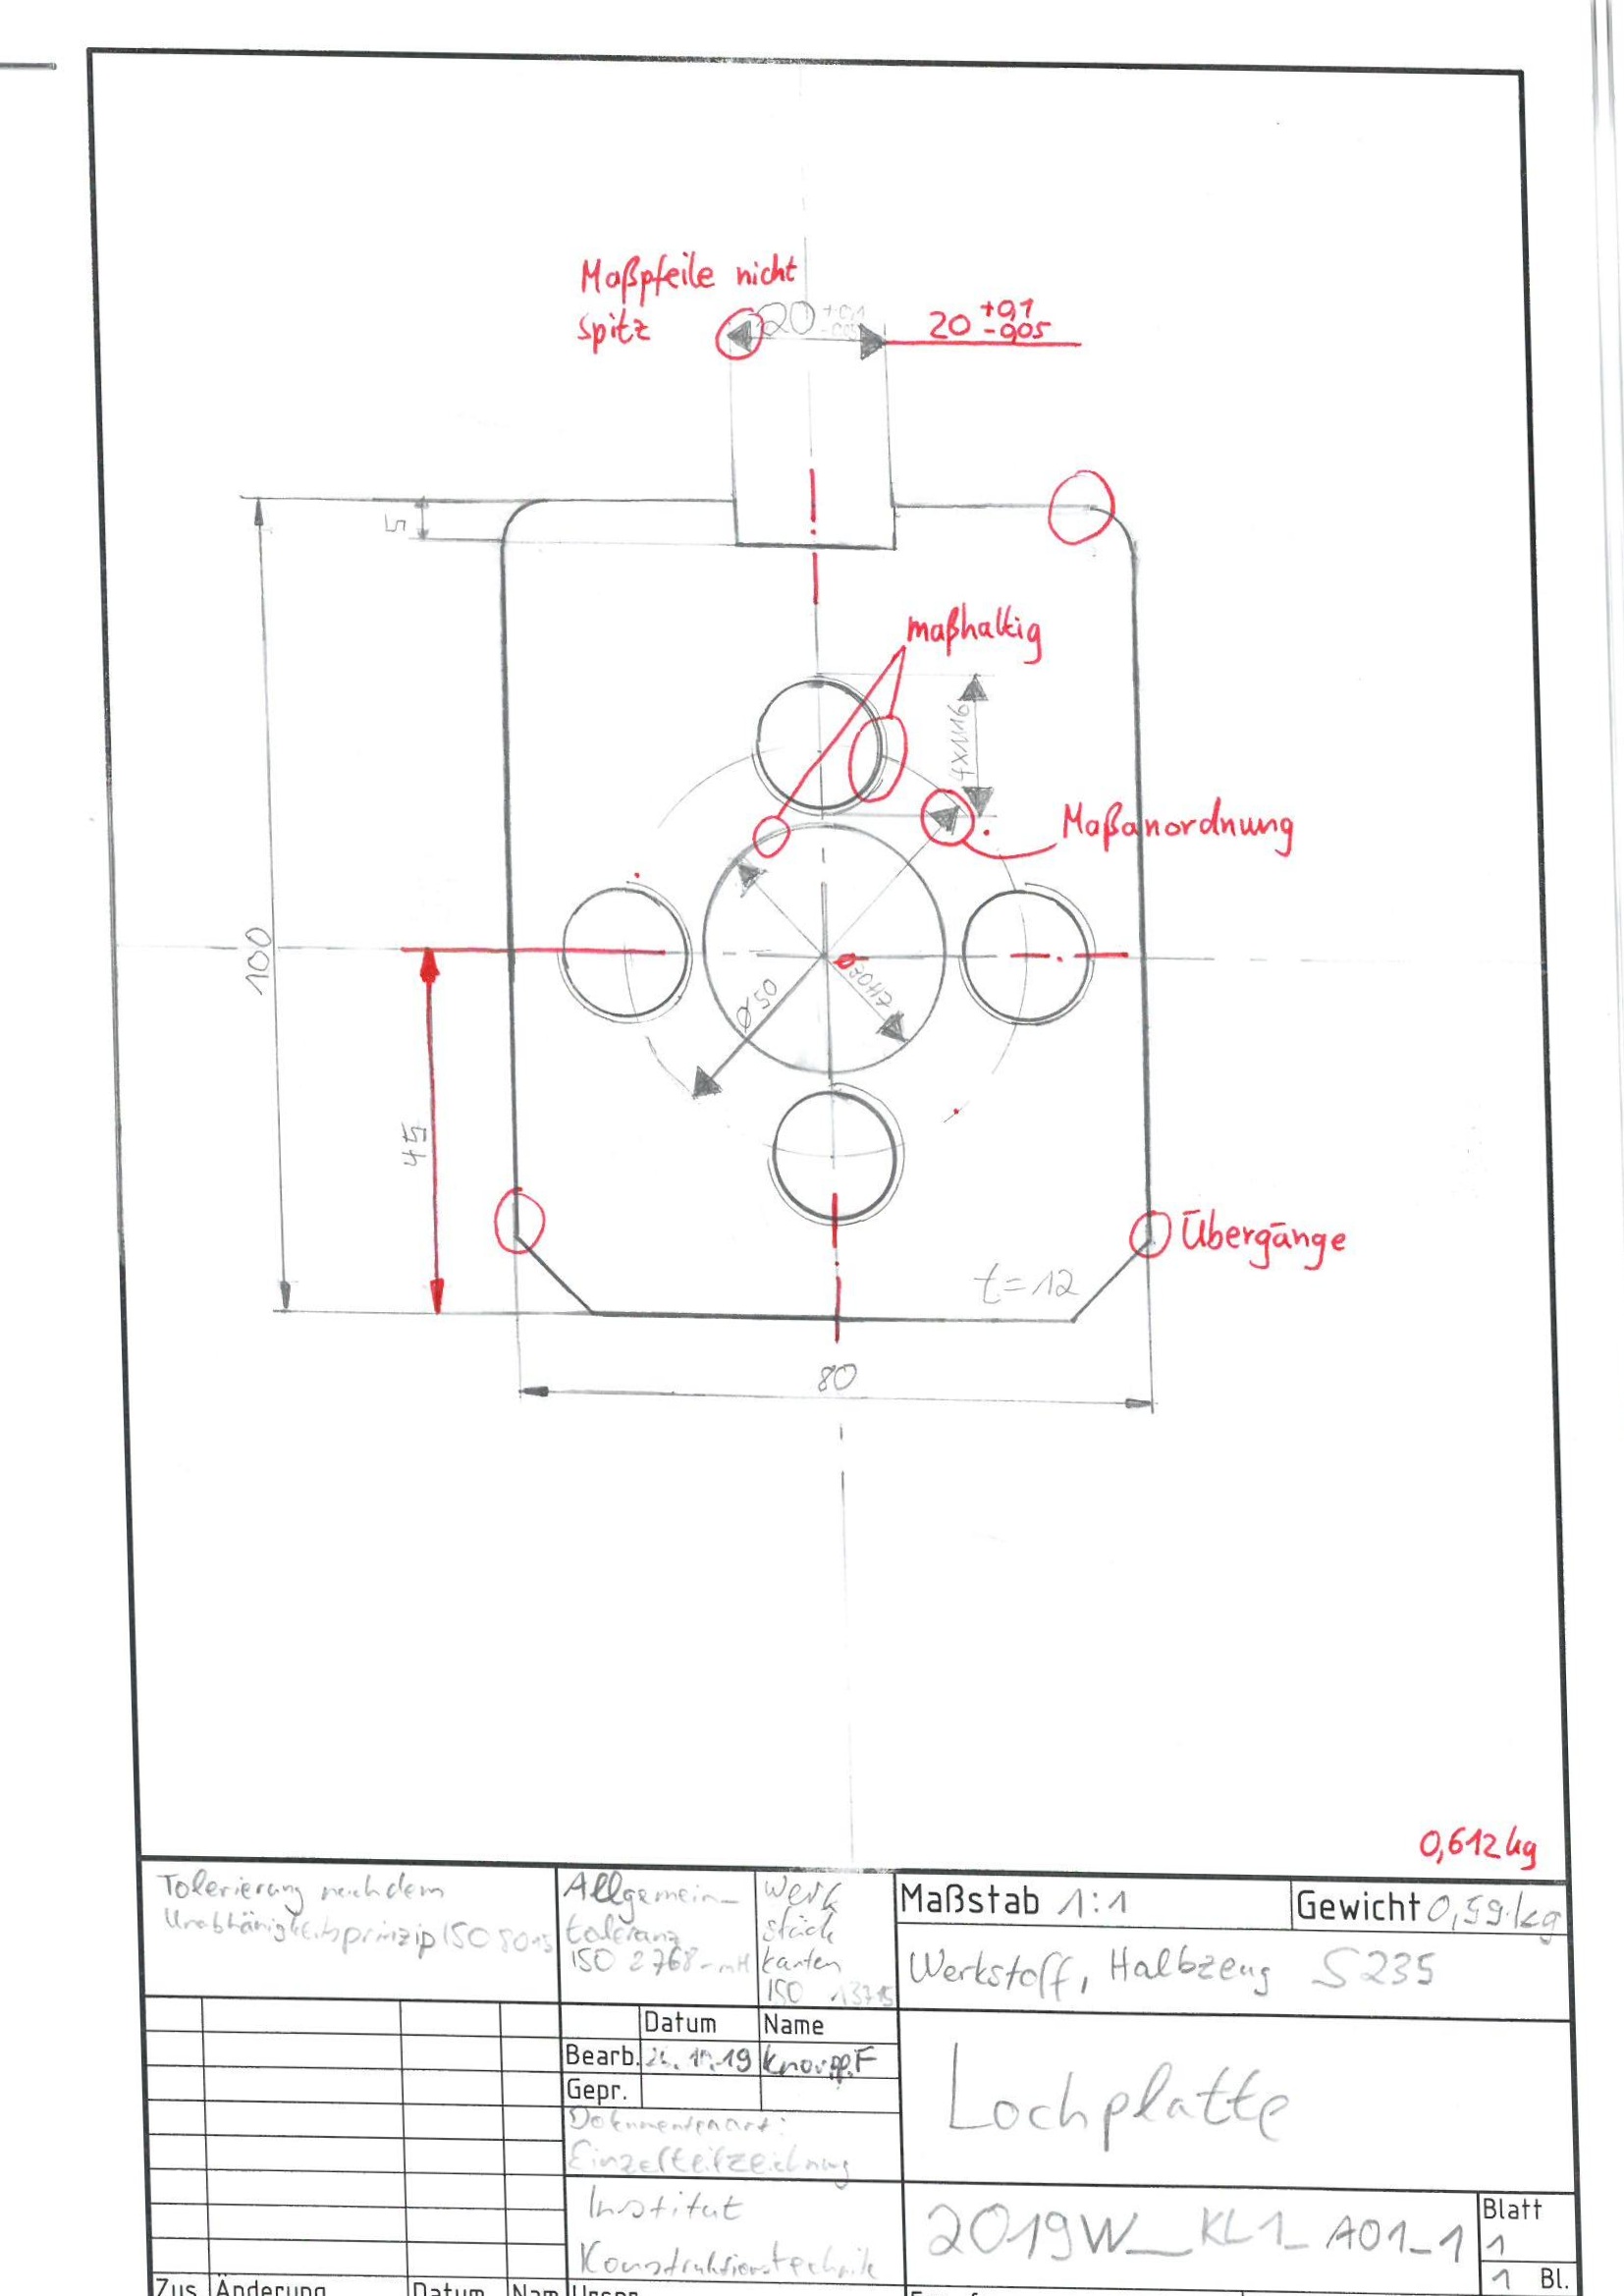 Maßpfeile nicht
spitz
20 +0,1 -0,05
20 +0,1 -0,05
5
maßhaltig
4xM16
Maßanordnung
100
Ø50
Ø30H7
45
Übergänge
t=12
80
0,612 kg
Tolerierung nach dem
Unabhänigkeitsprinzip ISO 8015
Allgemein-
toleranz
ISO 2768-mH
Werk
stück
kanten
ISO 13715
Maßstab 1:1
Gewicht 0,59 kg
Werkstoff, Halbzeug S235
Datum Name
Bearb.
Gepr.
Lochplatte
Dokumentenart:
Einzelteilzeichnung
Institut
Konstruktionstechnik
2019W_KL1_A01_1
Blatt
1
1 Bl.
Zus Änderung Datum Nam